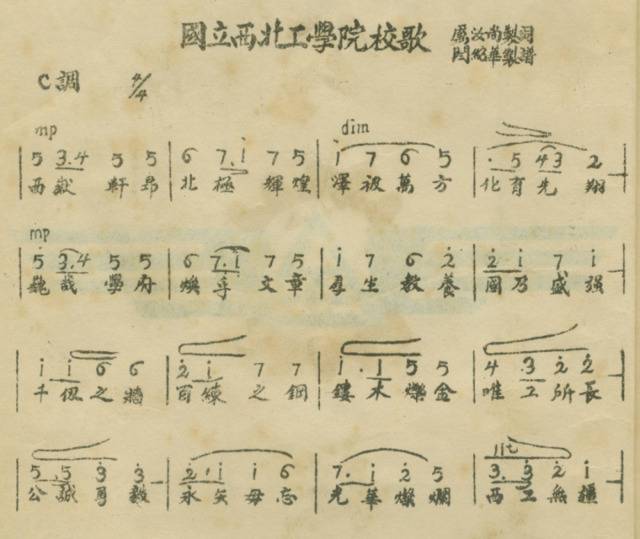 國立西北工學院校歌
汝尚製詞
紹華製譜
C調 4/4
mp dim
5 3.4 5 5 6 7.i 7 5 i 7 6 5 . 5 4 3 2
西嶽軒昂 北極輝煌 澤被萬方 化育先翔
mp
5 3.4 5 5 6 7.i 7 5 i 7 6 2 2 i 7 i
巍哉學府 煥乎文章 羣生教養 國乃盛强
i i 6 6 2 i 7 7 i . i 5 5 4 3 2 2
千仭之牆 百鍊之鋼 鏤木爍金 唯工所長
5 . 5 3 3 2 . i i 6 7 . i 2 5 3 . 3 2 i
公誠勇毅 永矢毋忘 光華燦爛 西工無疆